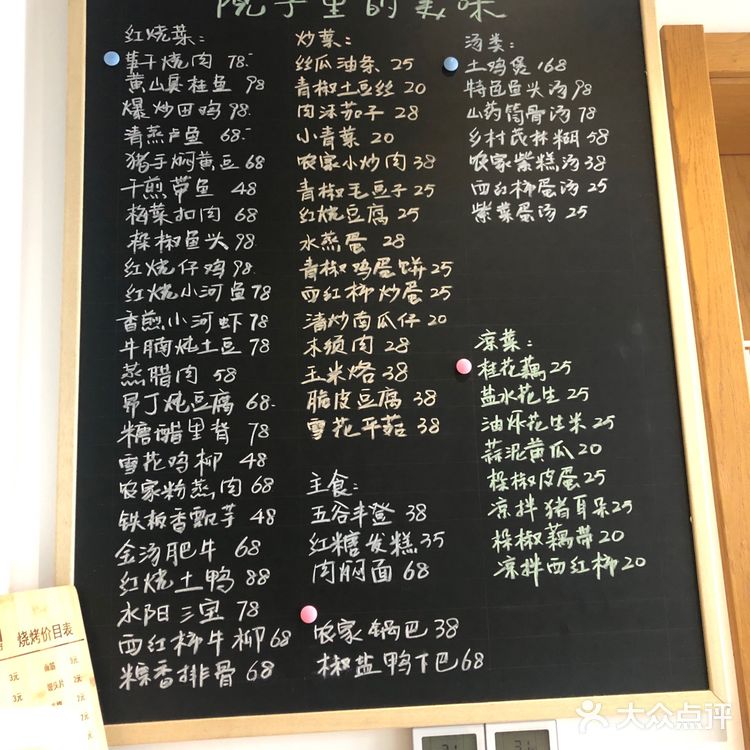 院子里的美味
红烧菜:
笋干烧肉 78.
黄山臭桂鱼 98
爆炒田鸡 98.
清蒸卢鱼 68.
猪手焖黄豆 68
干煎带鱼 48
梅菜扣肉 68
桗椒鱼头 98.
红烧仔鸡 98.
红烧小河鱼 78
香煎小河虾 78
牛腩炖土豆 78
蒸腊肉 58
昂丁炖豆腐 68.
糖醋里脊 78
雪花鸡柳 48
农家粉蒸肉 68
铁板香瓢芋 48
金汤肥牛 68
红烧土鸭 88
水阳三宝 78
西红柿牛柳 68
粽香排骨 68
炒菜:
丝瓜油条 25
青椒土豆丝 20
肉沫茄子 28
小青菜 20
农家小炒肉 38
青椒毛豆子 25
红烧豆腐 25
水蒸蛋 28
青椒鸡蛋饼 25
西红柿炒蛋 25
清炒南瓜仔 20
木须肉 28
玉米烙 38
脆皮豆腐 38
雪花平菇 38
主食:
五谷丰登 38
红糖发糕 35
肉焖面 68
农家锅巴 38
椒盐鸭下巴 68
汤类:
土鸡煲 168
特色鱼头汤 98
山药筒骨汤 78
乡村民林糊 58
农家紫糕汤 38
西红柿蛋汤 25
紫菜蛋汤 25
凉菜:
桂花藕 25
盐水花生 25
油炸花生米 25
蒜泥黄瓜 20
桗椒皮蛋 25
凉拌猪耳朵 25
桗椒藕带 20
凉拌西红柿 20
烧烤价目表
大众点评